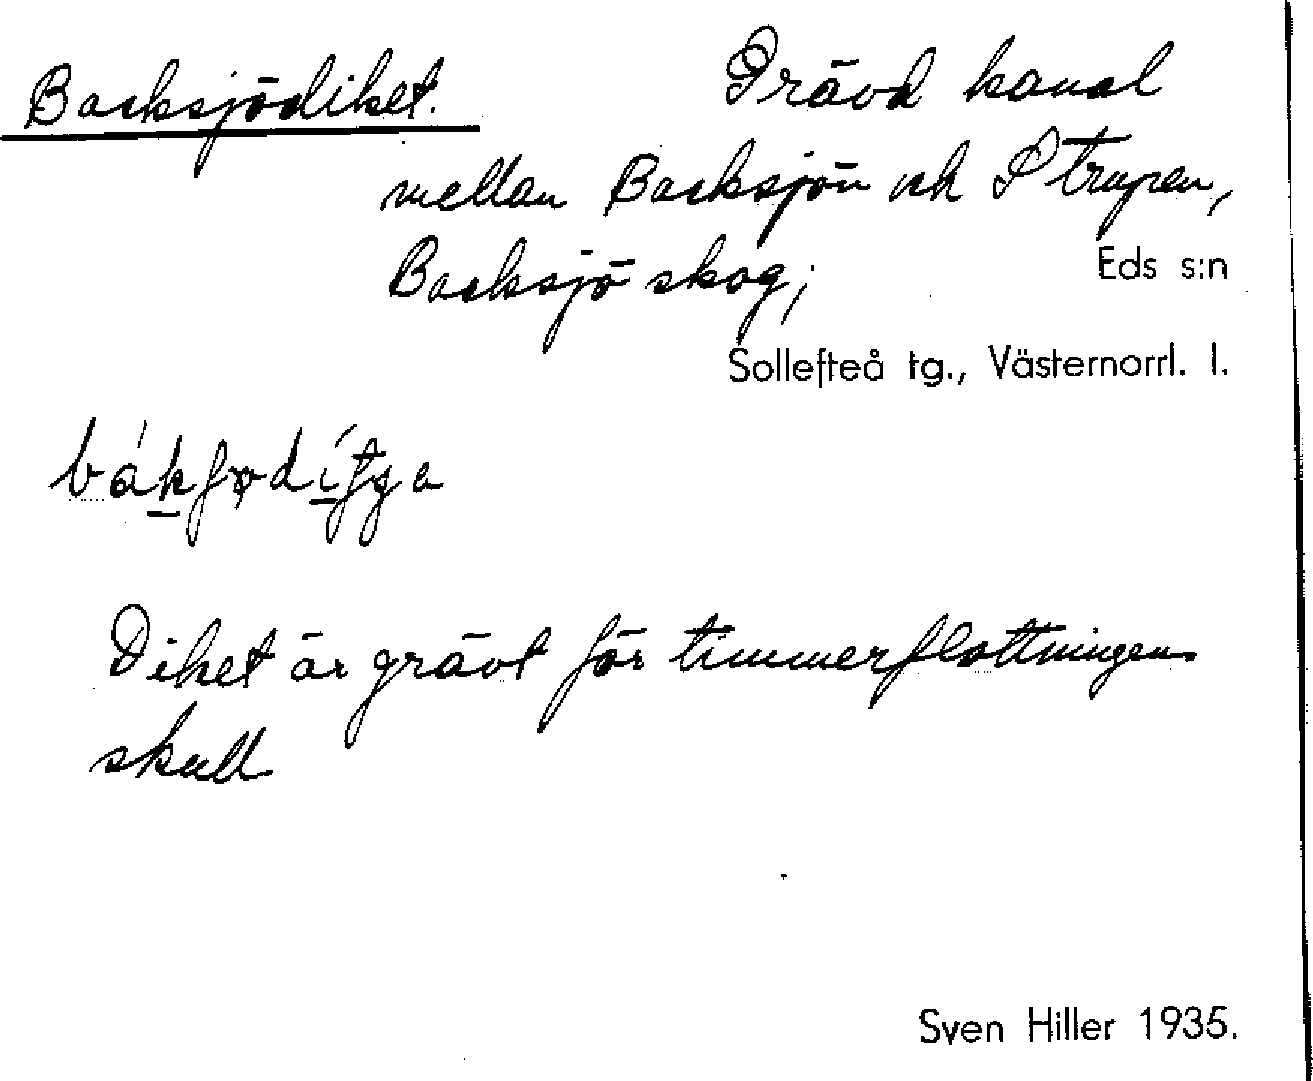 Backsjödiket. Grävd kanal
mellan Backsjön och Strupen,
Backsjö skog; Eds s:n
Sollefteå tg., Västernorrl. l.
Diket är grävt för timmerflottningens
skull
Sven Hiller 1935.